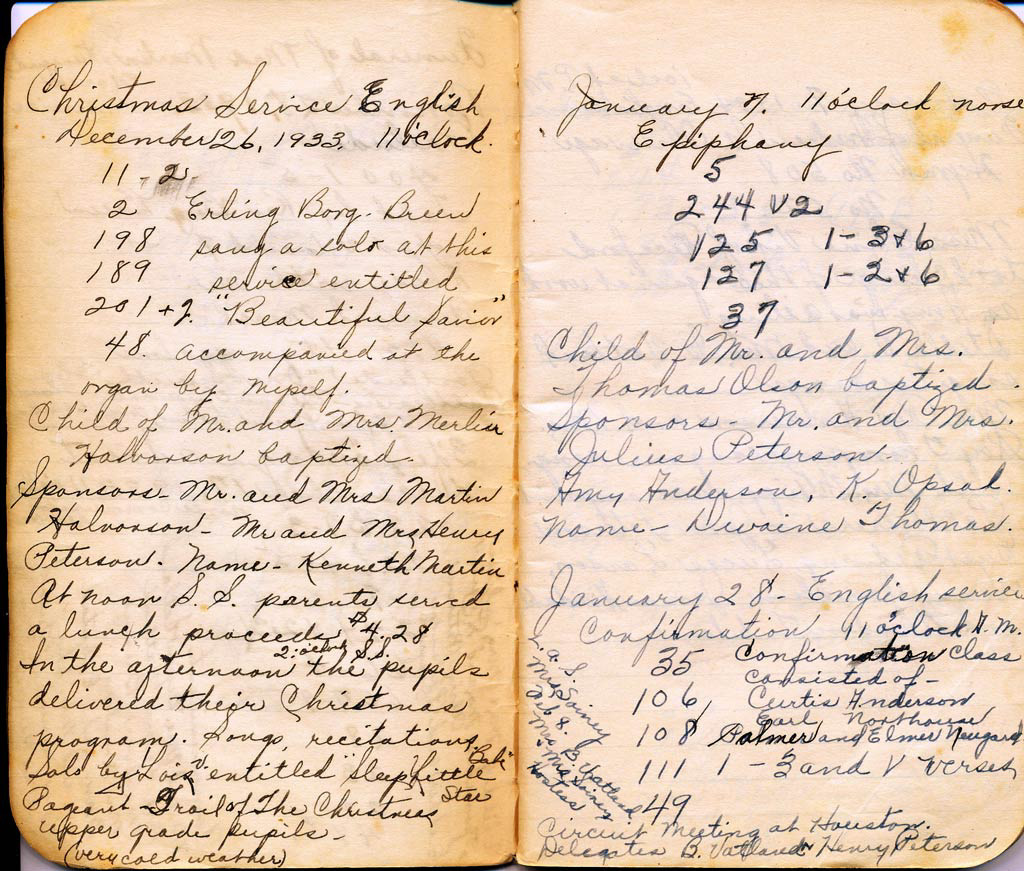 Christmas Service English
December 26, 1933. 11 o'clock.
11 - 2.
2 Erling Borg-Breen
198 sang a solo at this
189 service entitled
201 + 7. "Beautiful Savior"
48. accompanied at the
organ by myself.
Child of Mr. and Mrs. Merlin
Halvorson baptized.
Sponsors - Mr. and Mrs Martin
Halvorson - Mr and Mrs Henry
Peterson. Name - Kenneth Martin
At noon S. S. parents served
a lunch proceeds $4.28
2: o'clock S.S.
In the afternoon the pupils
delivered their Christmas
program. Songs, recitations,
Solo by Lois V. entitled "Sleep Little "Bab"
Pageant - Trail of The Christmas Star
upper grade pupils -
(very cold weather)
January 7. 11 o'clock norse
Epiphany
5
244 V2
125 1-3+6
127 1-2+6
37
Child of Mr. and Mrs.
Thomas Olson baptized.
Sponsors - Mr. and Mrs.
Julius Peterson.
Amy Anderson, K. Opsal.
Name - Dwaine Thomas.
January 28 - English service
Confirmation 11 o'clock A.M.
35 Confirmation Class
consisted of -
106 Curtis Anderson
Earl Northouse
108 Palmer and Elmer Naugard
111 1-3 and V verses
49
L. A. S.
Mrs. Soiney
Feb 8.
Mrs. B. Vatland
Mrs Soiney
Hostess
Circuit Meeting at Houston.
Delegates B. Vatland Henry Peterson